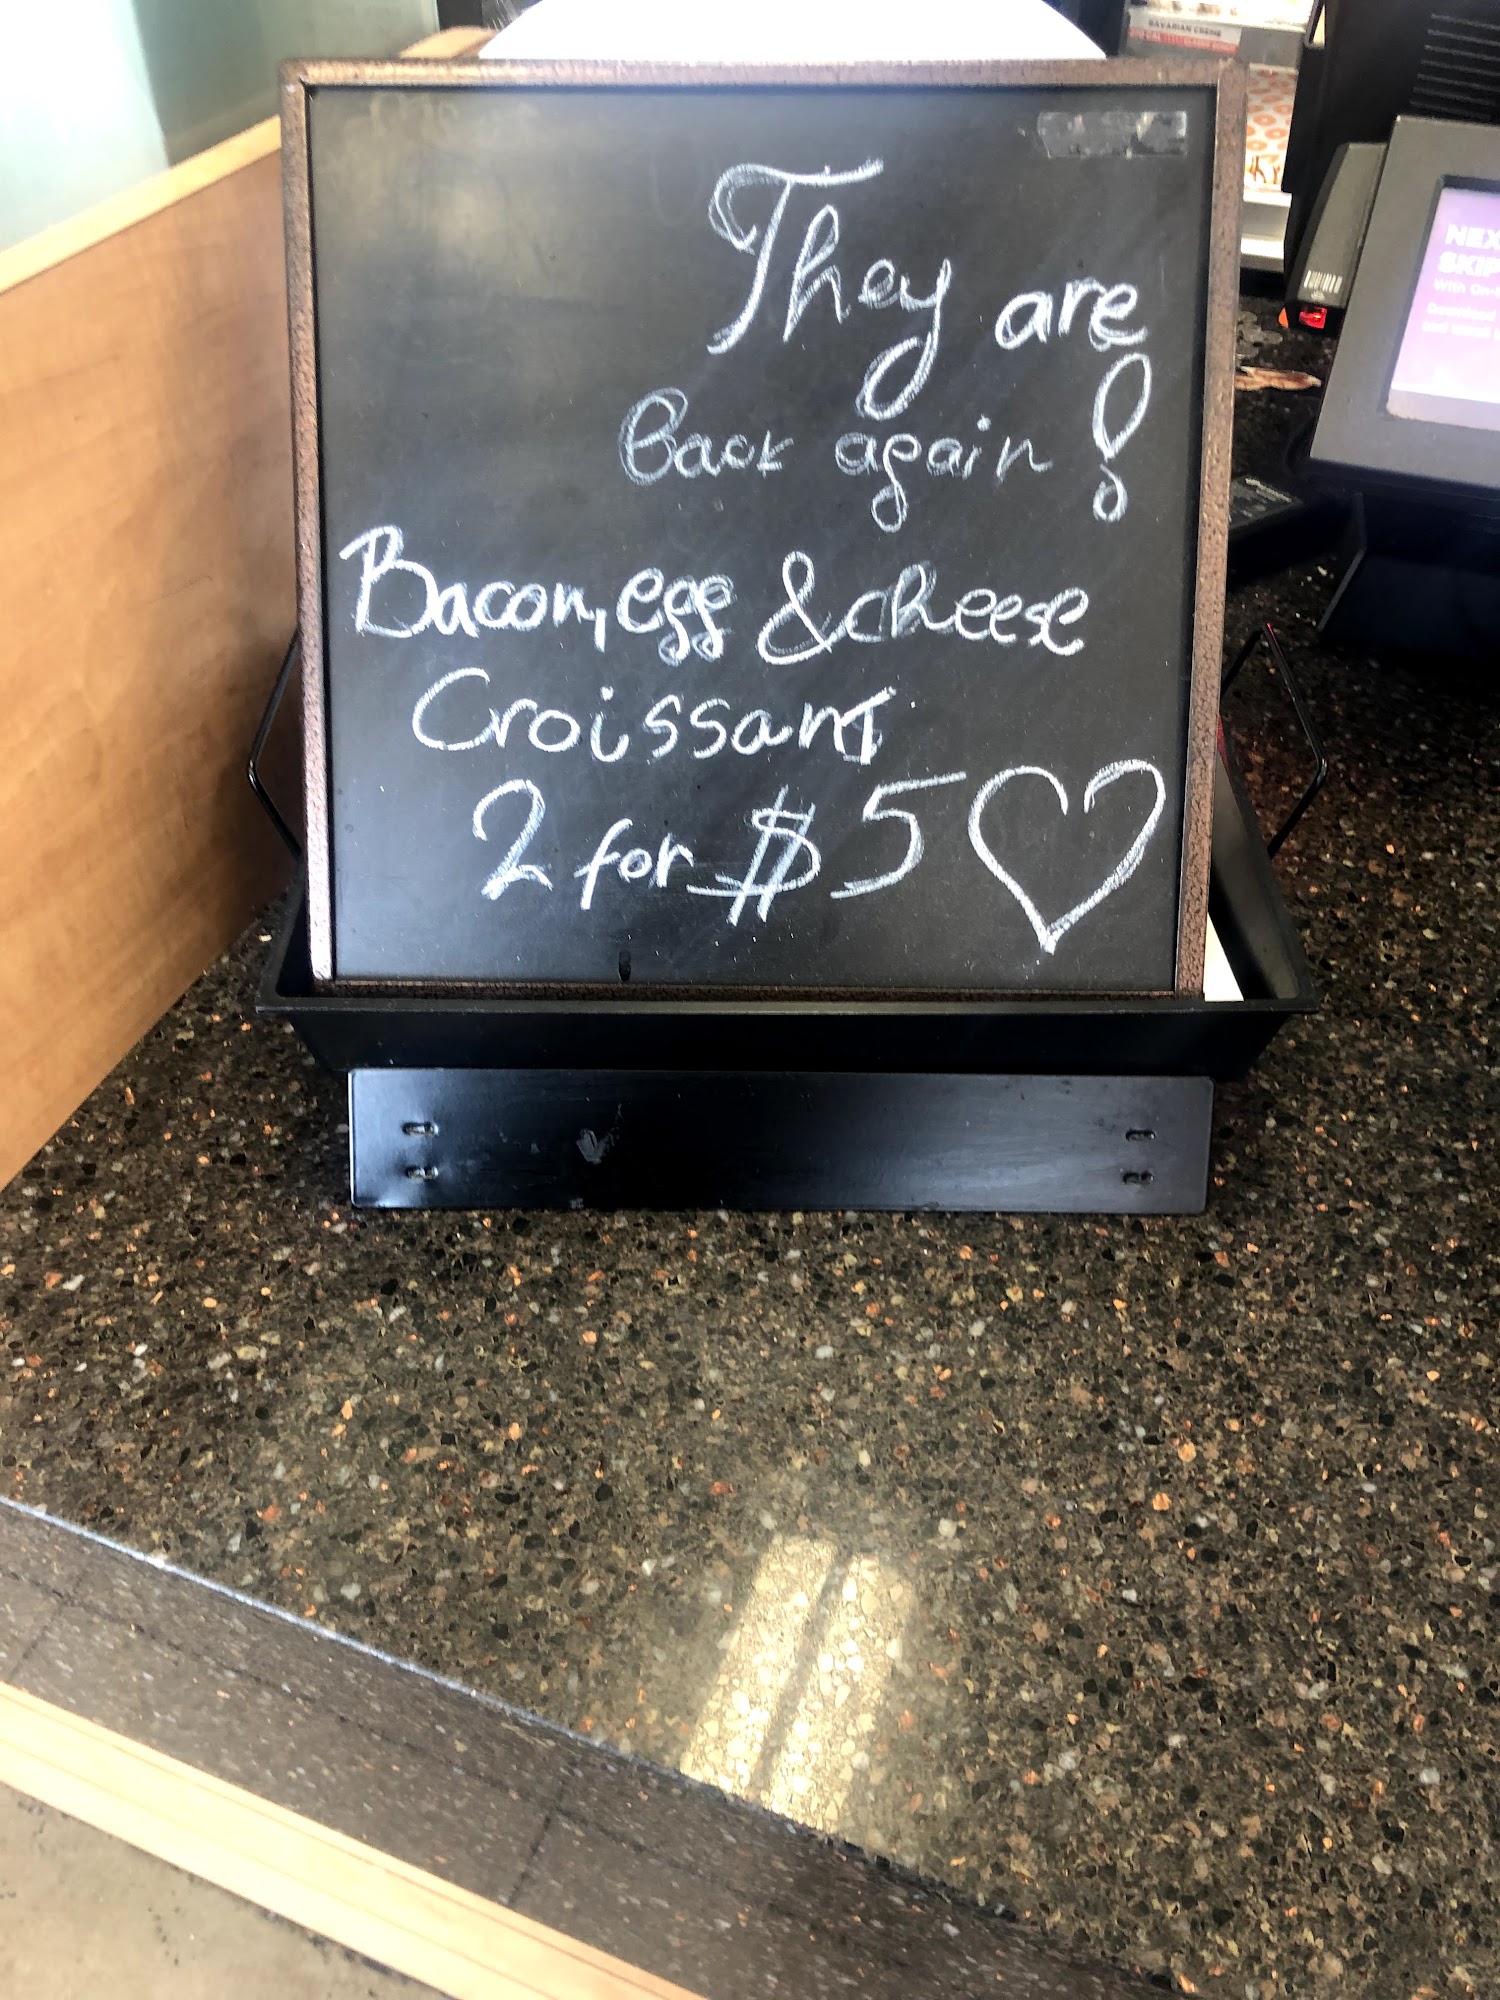 They are
Back again!
Bacon, egg & cheese
Croissant
2 for $5
BAVARIAN CREME
With On-
Download